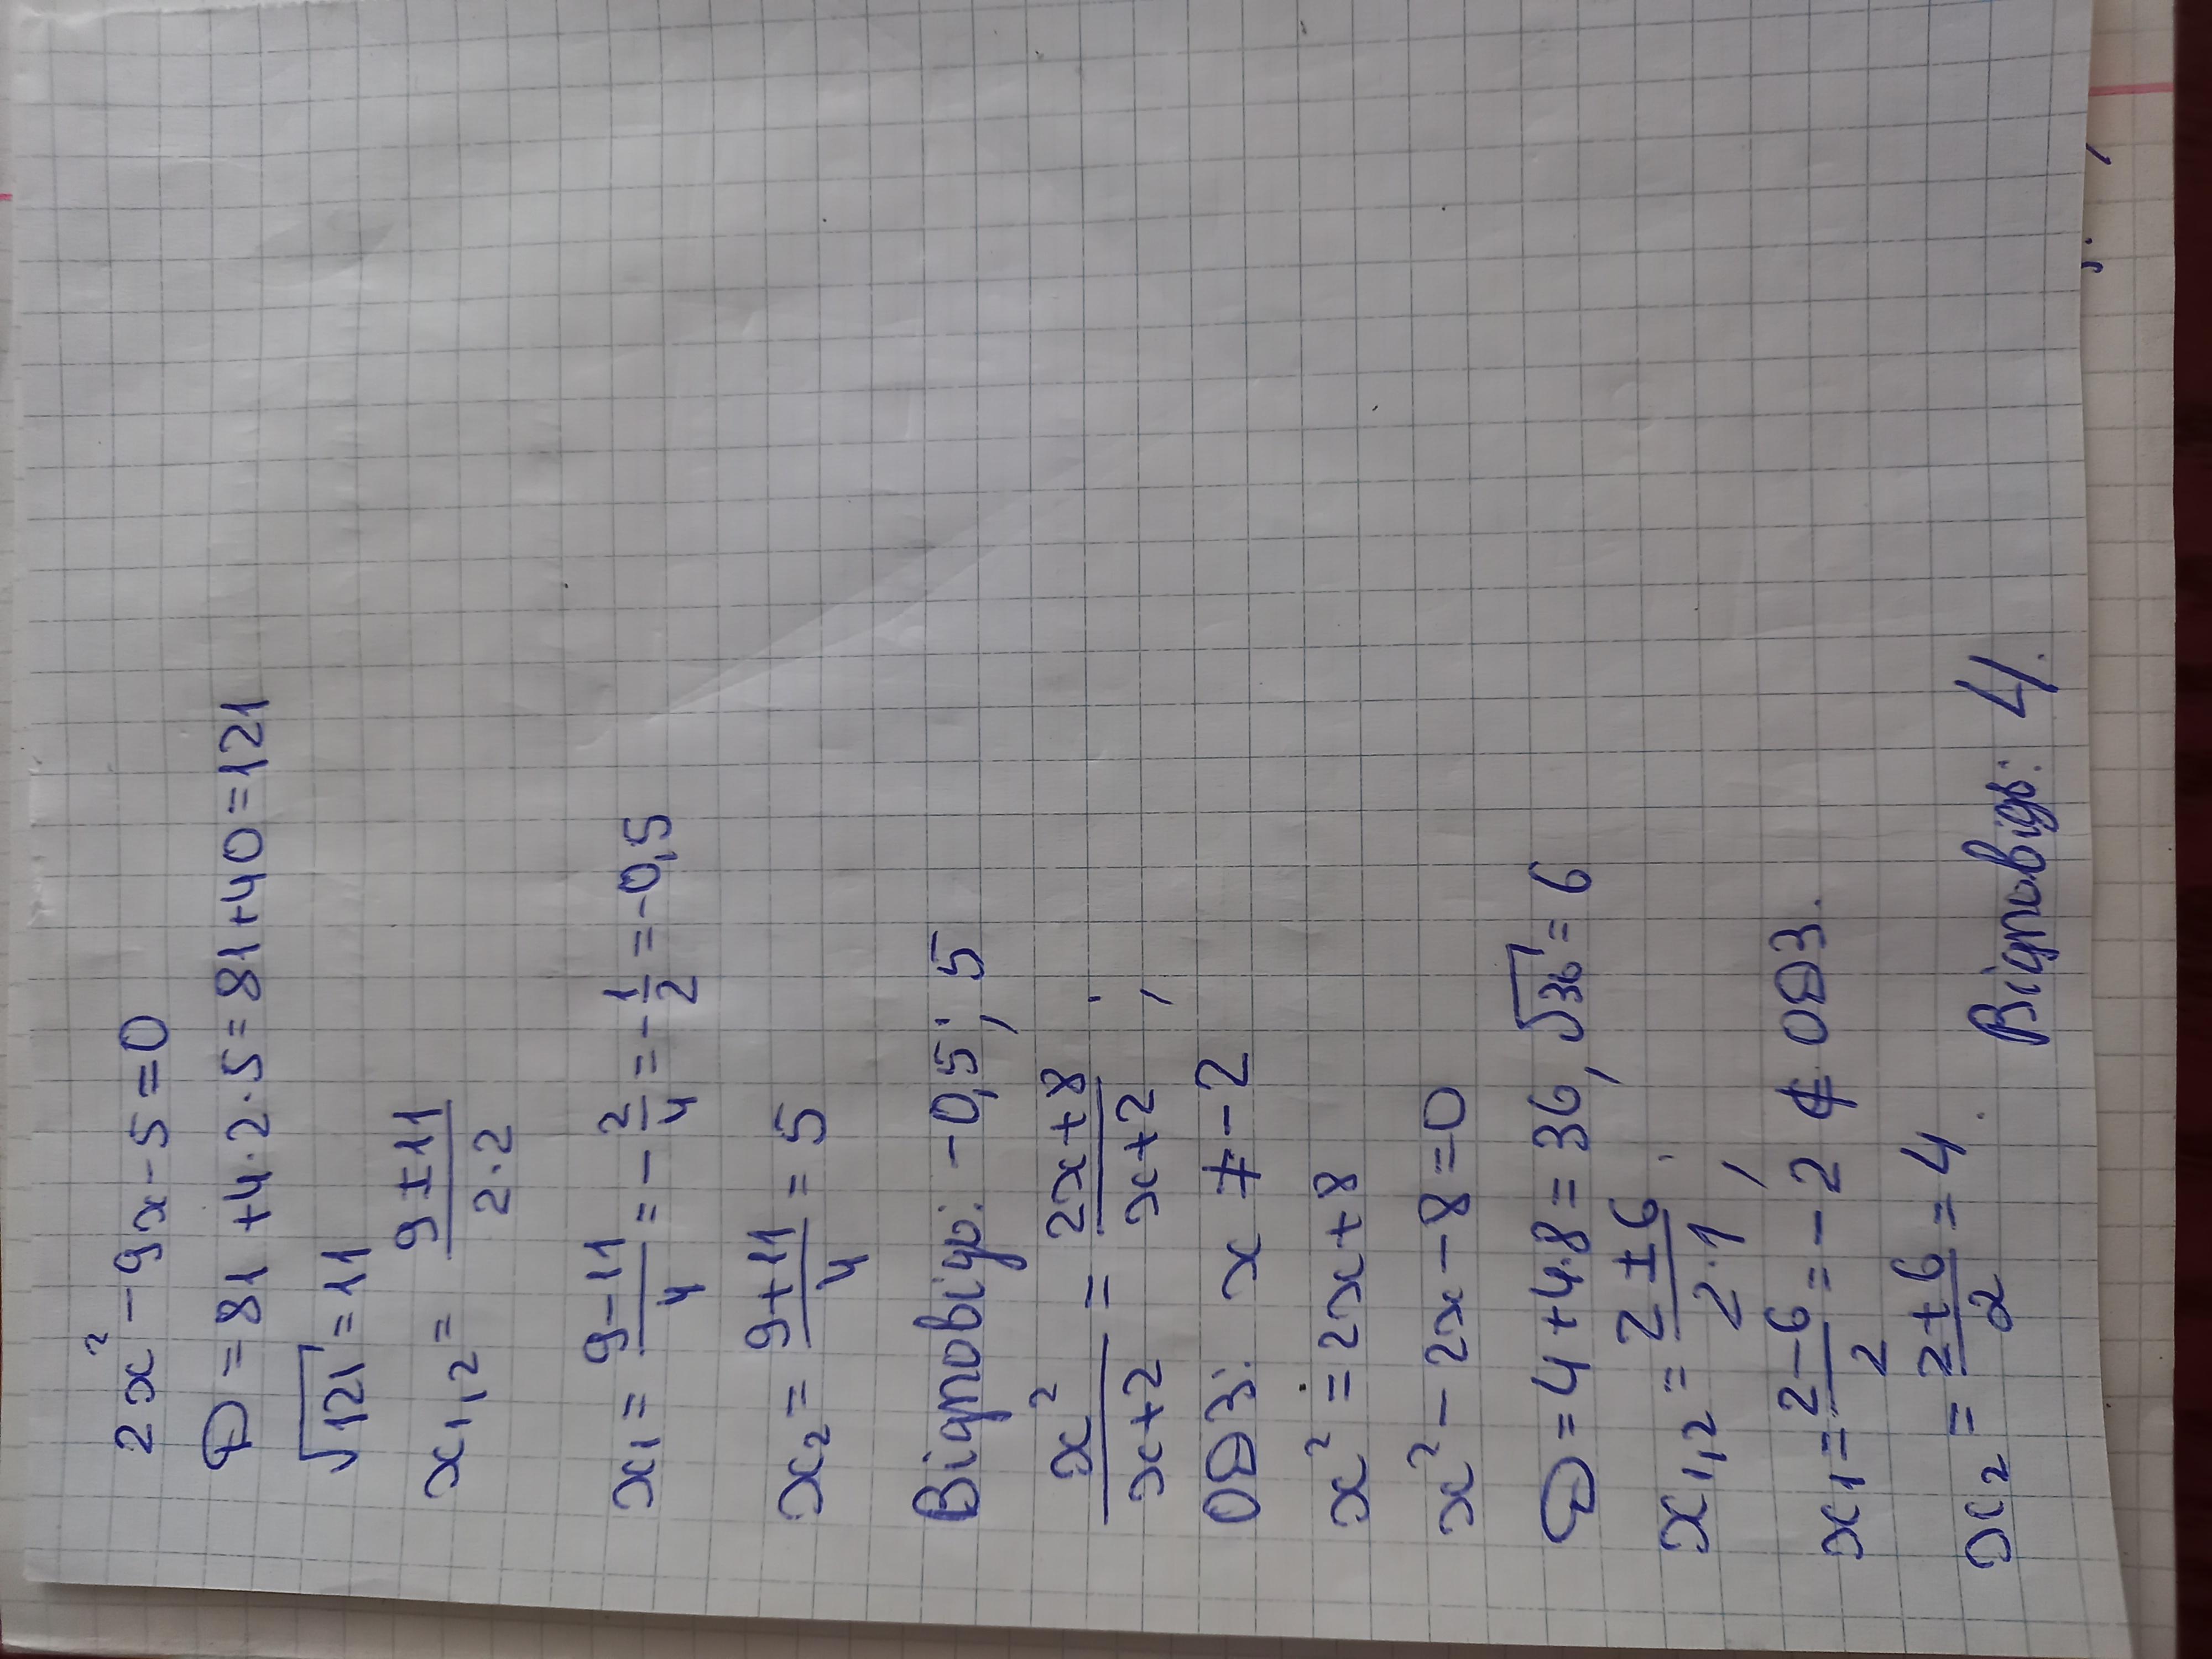 2x² - 9x - 5 = 0
D = 81 + 4·2·5 = 81 + 40 = 121
√121 = 11
x₁,₂ = (9 ± 11)/(2·2)
x₁ = (9 - 11)/4 = - 2/4 = - 1/2 = -0,5
x₂ = (9 + 11)/4 = 5
Відповідь: -0,5; 5
x²/(x+2) = (2x+8)/(x+2);
ОДЗ: x ≠ -2
x² = 2x + 8
x² - 2x - 8 = 0
D = 4 + 4·8 = 36, √36 = 6
x₁,₂ = (2 ± 6)/(2·1);
x₁ = (2 - 6)/2 = -2 ∉ ОДЗ.
x₂ = (2 + 6)/2 = 4. Відповідь: 4.